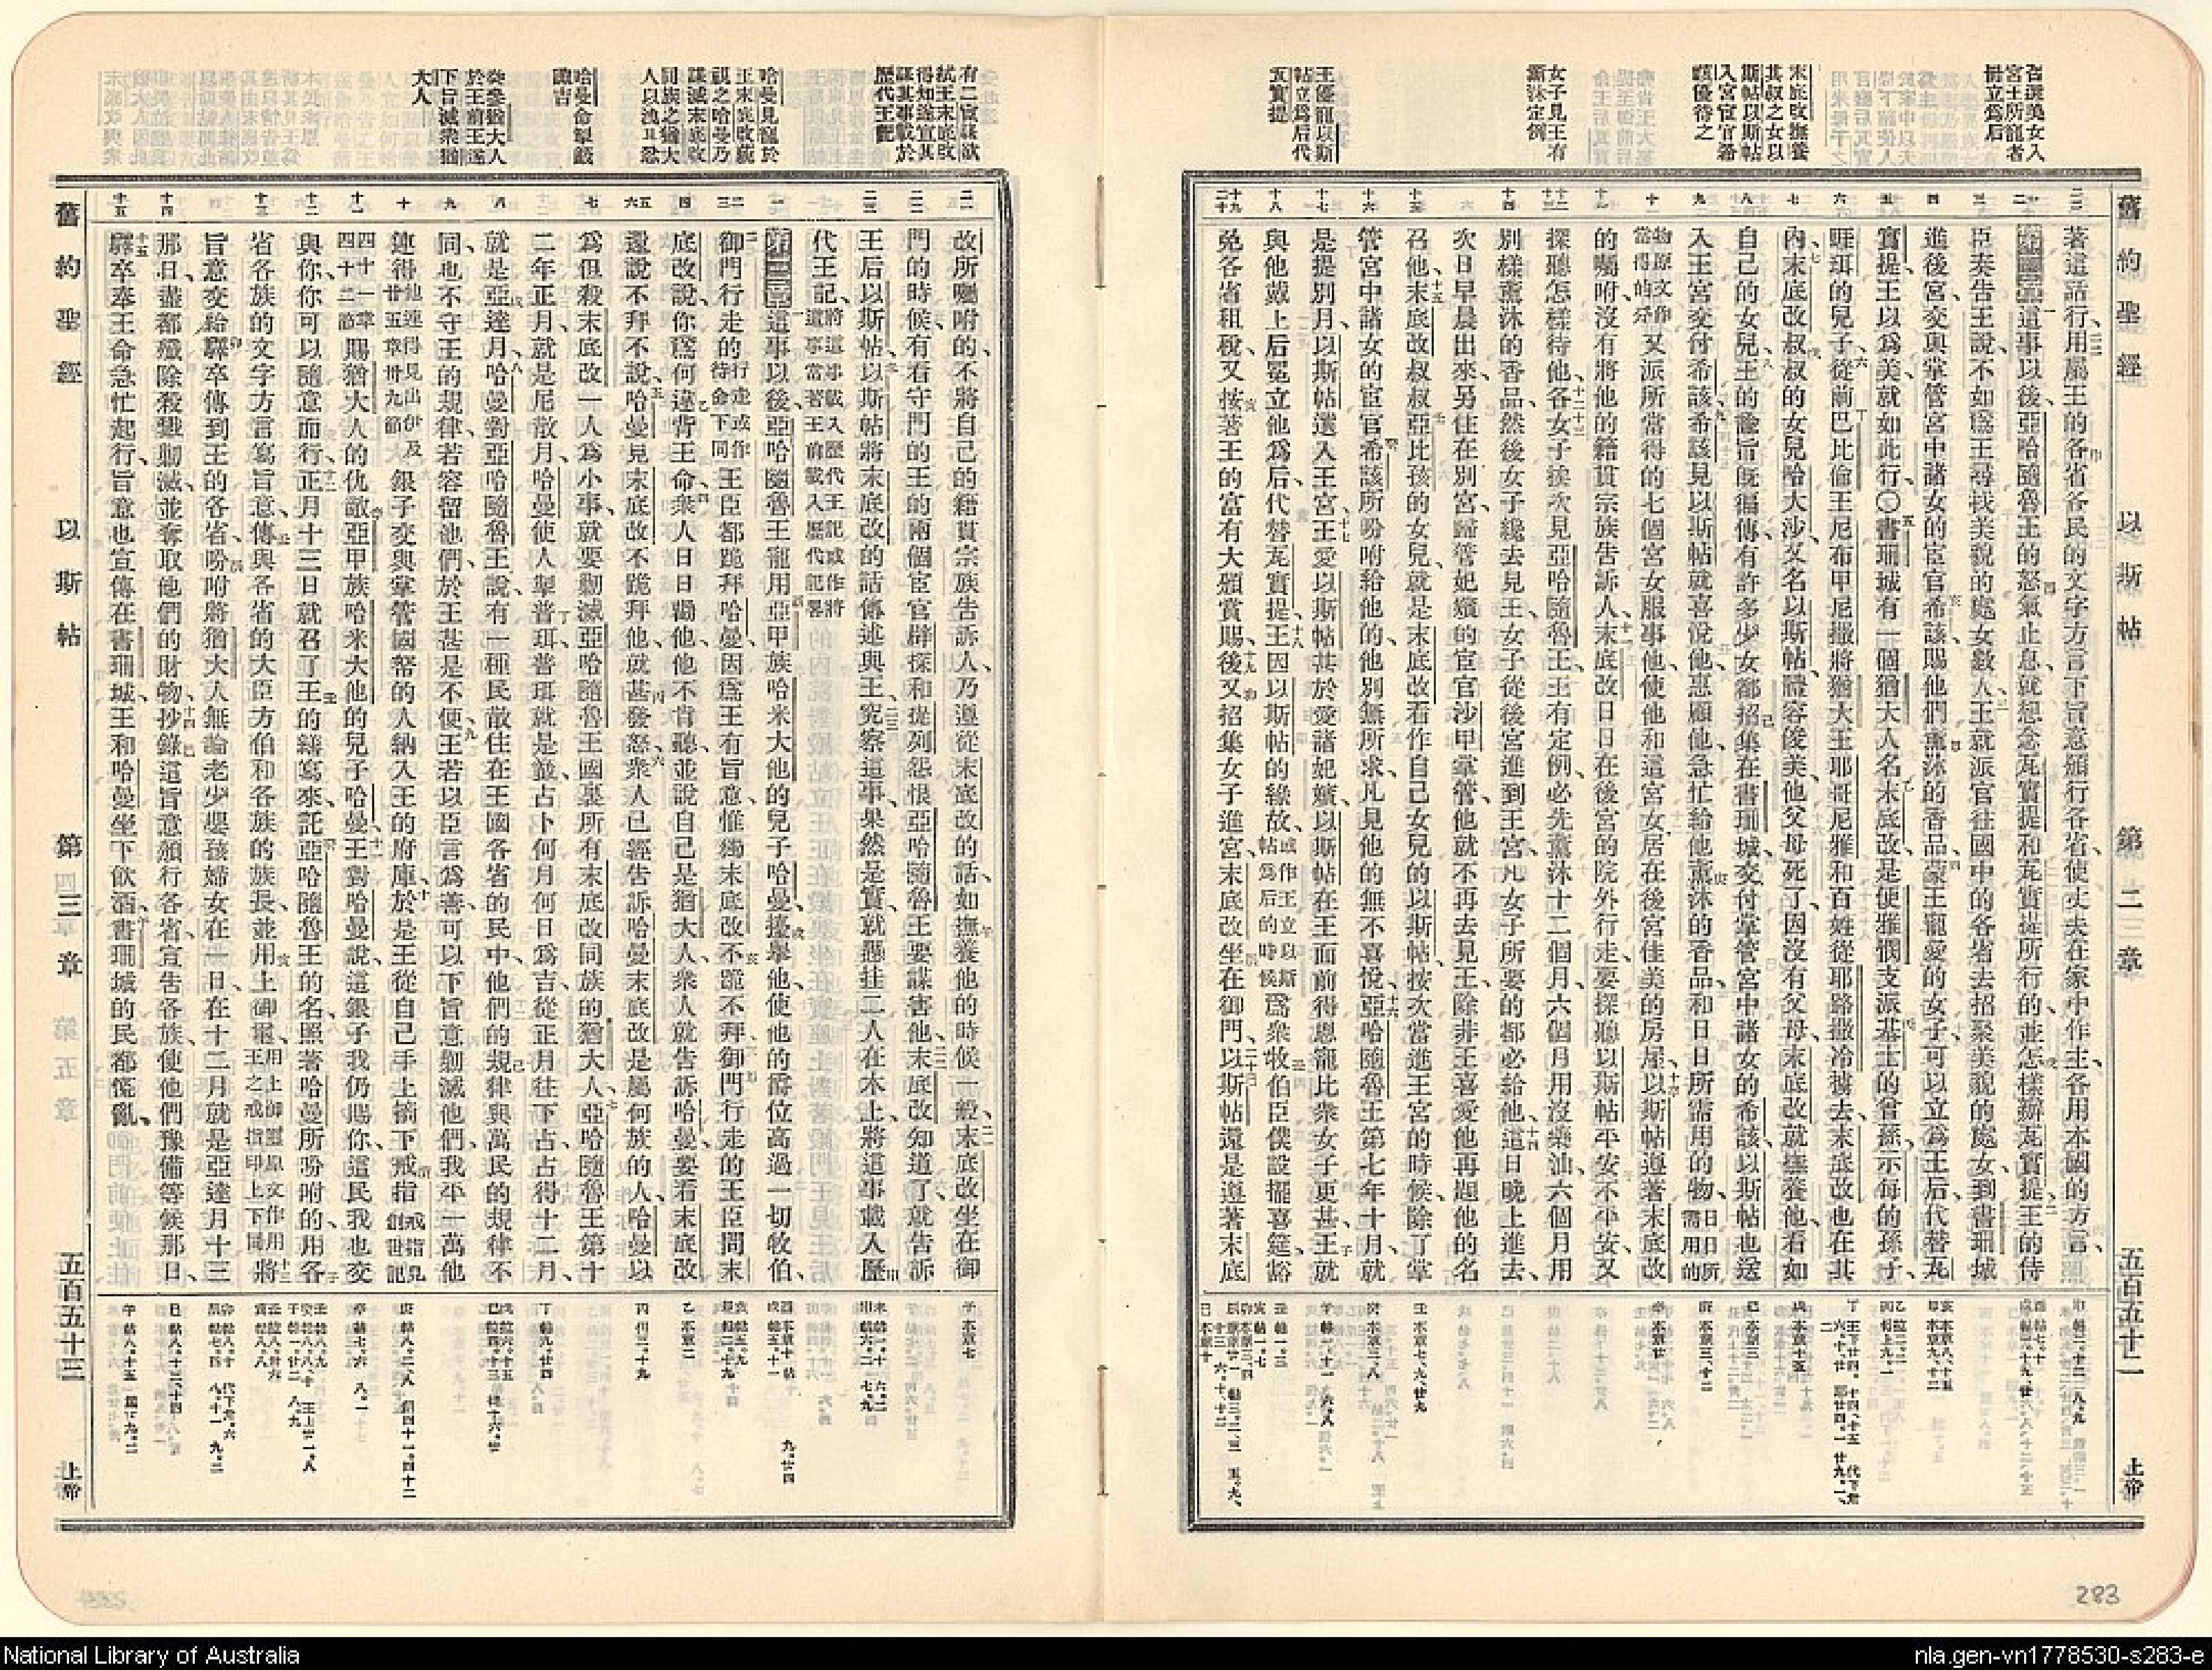 舊約聖經 以斯帖 第二章 五百五十二 上帝
召選美女入
宮王所寵者
冊立爲后
末底改撫養
其叔之女以
斯帖以斯帖
入宮宦官希
該優待之
女子見王有
薰沐定例
王優寵以斯
帖立爲后代
瓦實提
著這話行、用屬王的各省各民的文字方言下旨意頒行各省、使丈夫在家中作主、各用本國的方言、
第二章 這事以後、亞哈隨魯王的怒氣止息、就想念瓦實提和瓦實提所行的、並怎樣辦瓦實提、王的侍
臣奏告王說、不如爲王尋找美貌的處女數人、王就派官往國中的各省去招聚美貌的處女、到書珊城
進後宮、交與掌管宮中諸女的宦官希該、賜他們薰沐的香品、蒙王寵愛的女子、可以立爲王后、代替瓦
實提、王以爲美、就如此行〇書珊城有一個猶大人名末底改、是便雅憫支派基士的曾孫、示每的孫子、
睚珥的兒子、從前巴比倫王尼布甲尼撒將猶大王耶哥尼雅和百姓從耶路撒冷擄去、末底改也在其
內、末底改叔叔的女兒哈大沙、又名以斯帖、體容俊美、他父母死了、因沒有父母、末底改就撫養他、看如
自己的女兒、王的諭旨既徧傳、有許多少女都招集在書珊城、交付掌管宮中諸女的希該、以斯帖也送
入王宮、交付希該、希該見以斯帖就喜悅他、惠顧他、急忙給他薰沐的香品、和日日所需用的物、日日所需用的
物原文作當得的分又派所當得的七個宮女服事他、使他和這宮女居在後宮佳美的房屋、以斯帖遵著末底改
的囑咐、沒有將他的籍貫宗族告訴人、末底改日日在後宮的院外行走、要探聽以斯帖平安不平安、又
探聽怎樣待他、各女子挨次見亞哈隨魯王、王有定例、必先薰沐十二個月、六個月用沒藥油、六個月用
別樣薰沐的香品、然後女子纔去見王、女子從後宮進到王宮、凡女子所要的都必給他、這日晚上進去、
次日早晨出來、另住在別宮、歸管妃嬪的宦官沙甲掌管、他就不再去見王、除非王喜愛他、再題他的名
召他、末底改叔叔亞比孩的女兒、就是末底改看作自己女兒的以斯帖、按次當進王宮的時候、除了掌
管宮中諸女的宦官希該所吩咐給他的、他別無所求、凡見他的無不喜悅、亞哈隨魯王第七年十月、就
是提別月、以斯帖選入王宮、王愛以斯帖甚於愛諸妃嬪、以斯帖在王面前得恩寵比衆女子更甚、王就
與他戴上后冕、立他爲后、代替瓦實提、王因以斯帖的緣故、或作王立以斯帖爲后的時候爲衆牧伯臣僕設擺喜筵、豁
免各省租稅、又按著王的富有大頒賞賜、後又招集女子進宮、末底改坐在御門、以斯帖還是遵著末底
283
有二宦謀欲
弒王末底改
得知遂宣其
謀其事載於
歷代王記
哈曼見寵於
王末底改藐
視之哈曼乃
謀滅末底改
同族之猶大
人以洩其忿
哈曼命掣籤
諏吉
奏參猶大人
於王前王遂
下旨滅衆猶
大人
改所囑咐的、不將自己的籍貫宗族告訴人、乃遵從末底改的話、如撫養他的時候一般、末底改坐在御
門的時候、有看守門的王的兩個宦官辟探和提列怨恨亞哈隨魯王、要謀害他、末底改知道了、就告訴
王后以斯帖、以斯帖將末底改的話傳述與王、究察這事、果然是實、就懸挂二人在木上、將這事載入歷
代王記、將這事載入歷代王記或作將這事當著王前載入歷代記畧
第三章 這事以後、亞哈隨魯王寵用亞甲族哈米大他的兒子哈曼、擡舉他、使他的爵位高過一切牧伯、
御門行走的行走或作待命下同王臣都跪拜哈曼、因爲王有旨意、惟獨末底改不跪不拜、御門行走的王臣問末
底改說、你爲何違背王命、衆人日日勸他、他不肯聽、並說自己是猶大人、衆人就告訴哈曼、要看末底改
還說不拜不說、哈曼見末底改不跪拜他、就甚發怒、衆人已經告訴哈曼末底改是屬何族的人、哈曼以
爲但殺末底改一人爲小事、就要勦滅亞哈隨魯王國裏所有末底改同族的猶大人、亞哈隨魯王第十
二年正月、就是尼散月、哈曼使人掣普珥、普珥就是籤、占卜何月何日爲吉、從正月往下占、占得十二月、
就是亞達月、哈曼對亞哈隨魯王說、有一種民散住在王國各省的民中、他們的規律與萬民的規律不
同、也不守王的規律、若容留他們、於王甚是不便、王若以臣言爲善、可以下旨意勦滅他們、我平一萬他
連得他連得見出伊及廿五章卅九節銀子交與掌管國帑的人、納入王的府庫、於是王從自己手上摘下戒指戒指見創世記
四十一章四十二節賜猶大人的仇敵亞甲族哈米大他的兒子哈曼、王對哈曼說、這銀子我仍賜你、這民我也交
與你、你可以隨意而行、正月十三日就召了王的繕寫來、託亞哈隨魯王的名、照著哈曼所吩咐的、用各
省各族的文字方言寫旨意、傳與各省的大臣方伯和各族的族長、並用上御璽、用上御璽原文作用王之戒指印上下同將
旨意交給驛卒傳到王的各省、吩咐將猶大人無論老少嬰孩婦女在一日、在十二月就是亞達月十三
那日、盡都殲除殺戮勦滅、並奪取他們的財物、抄錄這旨意頒行各省、宣告各族、使他們豫備等候那日、
驛卒奉王命急忙起行、旨意也宣傳在書珊城、王和哈曼坐下飲酒、書珊城的民都慌亂、
舊約聖經 以斯帖 第三章 五百五十三 上帝
National Library of Australia
nla.gen-vn1778530-s283-e